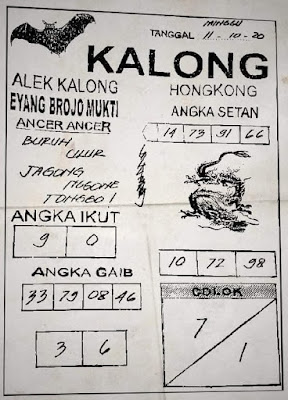 MINGGU
TANGGAL 11-10-20
KALONG
ALEK KALONG
EYANG BROJO MUKTI
ANCER ANCER
BURUH
ULUR
JAGONG
TONGGO !
HONGKONG
ANGKA SETAN
14 73 91 66
ANGKA IKUT
9 0
ANGKA GAIB
33 79 08 46
3 6
10 72 98
COLOK
7
1